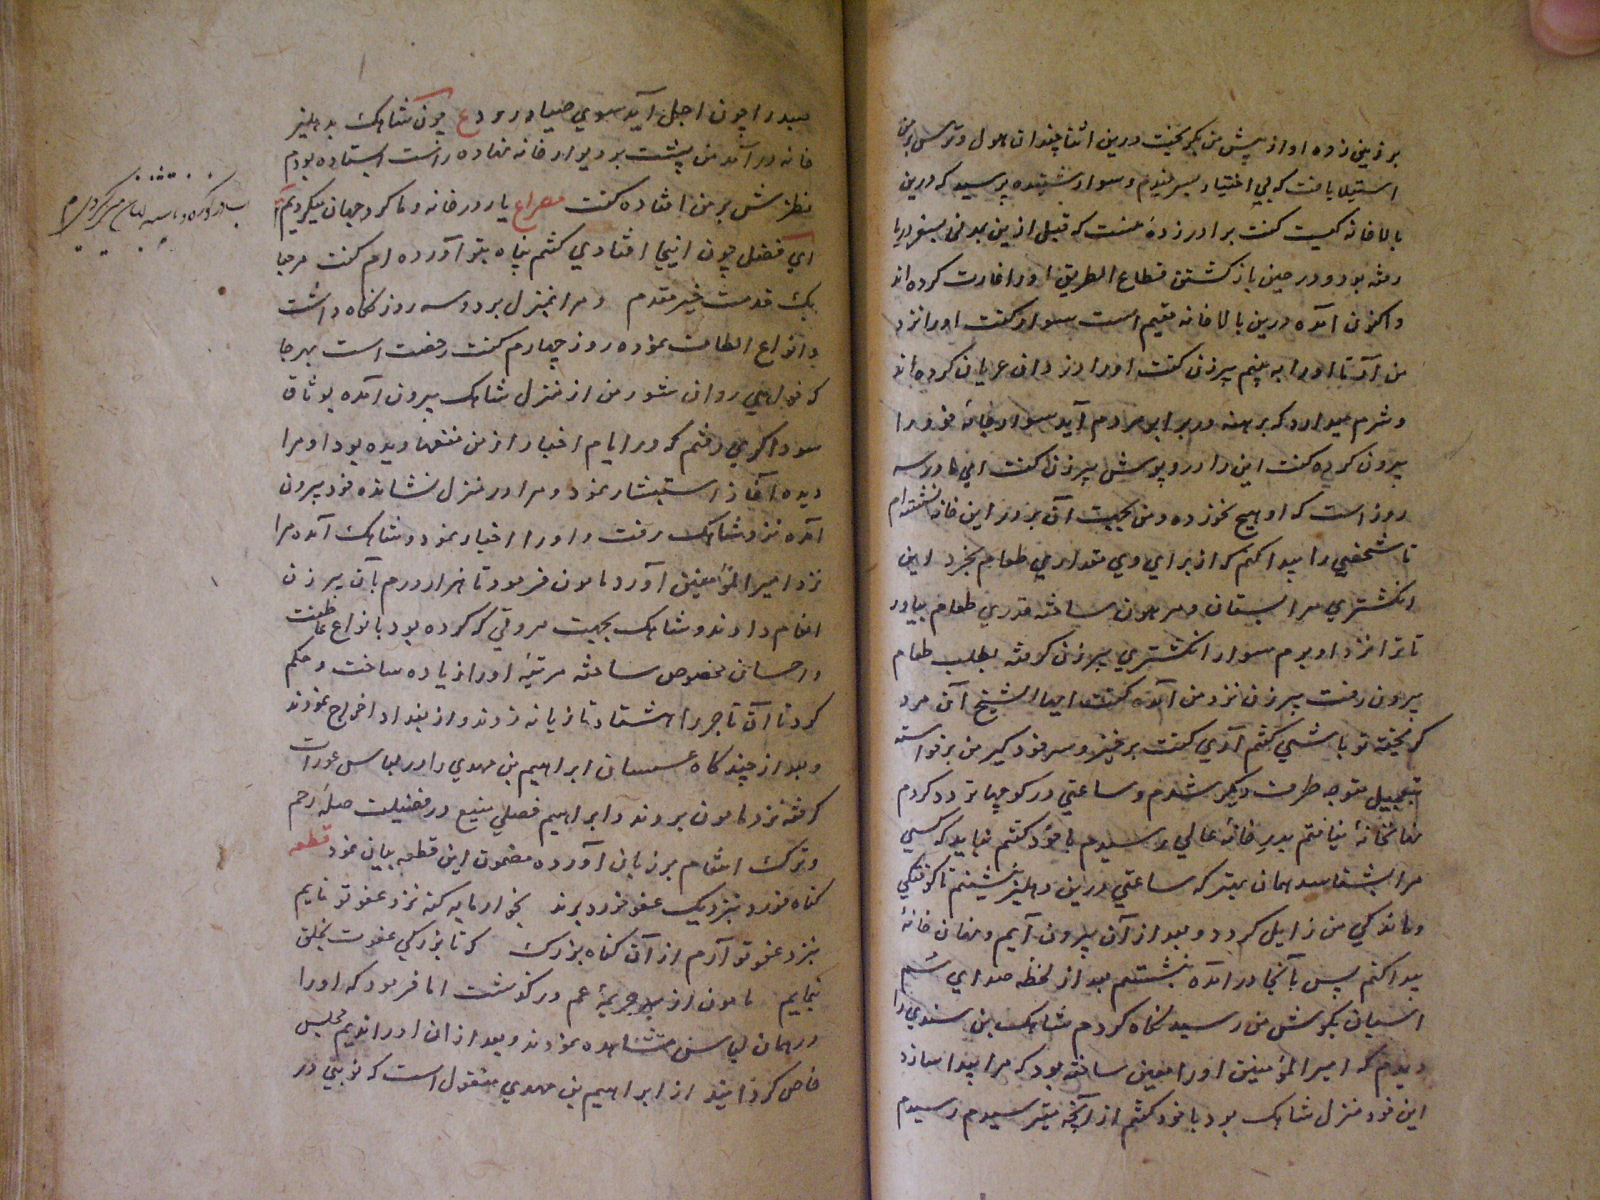 بر زمین زده او از پیش من بگریخت درین اثنا چندان هول و ترس بر من
استیلا یافت که بی اختیار بسرفیدم و سوار بشنیده پرسید که درین
بالاخانه کیست گفت برادرزدهٔ منست که قبل ازین بمدتی بسفر دریا
رفته بود و در حین بازگشتن قطاع الطریق اورا غارت کرده اند
و اکنون آمده درین بالاخانه مقیم است سوار گفت اورا نزد
من آر تا اورا به بینم پیرزن گفت اورا دزدان عریان کرده اند
و شرم میدارد که برهنه در برابر مردم آید سوار خانهٔ خود را
بیرون کرده گفت این را در و پوش پیرزن گفت ای مادر سه
روز است که او هیچ نخورده و من بجهت آن بر در این خانه نشسته ام
تا شخصی را پیدا کنم که از برای وی مقداری طعام بخرد این
انکشتری مرا بستان و مرهون ساخته قدری طعام بیاور
تا ترا نزد او برم سوار انکشتری پیرزن گرفته بطلب طعام
بیرون رفت پیرزن نزد من آمده گفت ایها الشیخ آن مرد
گریخته تو باشی گفتم آری گفت برخیز و سر خود گیر من برخواسته
بتعجیل متوجه طرف دیگر شدم و ساعتی در کوچها تردد کردم
مفانخانهٔ نیافتم بدر خانهٔ عالی رسیدم با خود گفتم نباید که کسی
مرا بشناسد همان بهتر که ساعتی درین دهلیز بنشینم تا کوفتگی
و ماندگی من زایل گردد و بعد از آن بیرون آیم و مفان خانهٔ
پیدا کنم پس بآنجا در آمده بنشستم بعد از لحظه صدای سم
اسپان بگوش من رسید نگاه کردم شاهک بن سندی را
دیدم که امیر المؤمنین اورا معین ساخته بود که مرا پیدا سازد
این خود منزل شاهک بود با خود گفتم از آنچه میترسیدم رسیدم
صید را چون اجل آید سوی صیاد رود ع چون شاهک بدهلیز
خانه در آمد من پشت بر دیوار خانه نهاده راست ایستاده بودم
نظرش بر من افتاده گفت مصراع یار در خانه و ما گرد جهان میگردیم
ای فضل چون اینجا افتادی گفتم پناه بتو آورده ام گفت مرحبا
بک قدمت خیر مقدم و مرا بمنزل برد و سه روز نگاه داشت
و انواع الطاف نموده روز چهارم گفت رخصت است بهر جا
که خواهی روان شو من از منزل شاهک بیرون آمده بوثاق
سوداگری رفتم که در ایام اختیار از من نفعها دیده بود او مرا
دیده آغاز استبشار نمود و مرا در منزل نشانده خود بیرون
آمده نزد شاهک رفت و او را اخبار نمود و شاهک آمده مرا
نزد امیر المؤمنین آورد مامون فرمود تا هزار درم بآن پیرزن
انعام دادند و شاهک بجهت مروتی که کرده بود بانواع عاطفت
و احسان مخصوص ساخته مرتبهٔ اورا زیاده ساخت و حکم
کرد تا آن تاجر را هشتاد تازیانه زدند و از بغداد اخراج نمودند
و بعد از چند گاه عسسان ابراهیم بن مهدی را در لباس عورات
گرفته نزد مامون بردند و ابراهیم فصلی منیع در فضیلت صلهٔ رحم
و ترک انتقام بر زبان آورده مضمون این قطعه بیان نمود قطعه
گناه خورد بنزدیک عفو خورد برند بخوار مایه گنه نزد عفو تو نایم
بنزد عفو تو آرم از آن گناه بزرگ که تا بزرگی عفوت بخلق
بنمایم مامون از جریمهٔ عم در گذشت اما فرمود که اورا
در همان لباس مشاهده نمودند و بعد از ان اورا ندیم مجلس
خاص گردانید از ابراهیم بن مهدی منقول است که نوبتی در